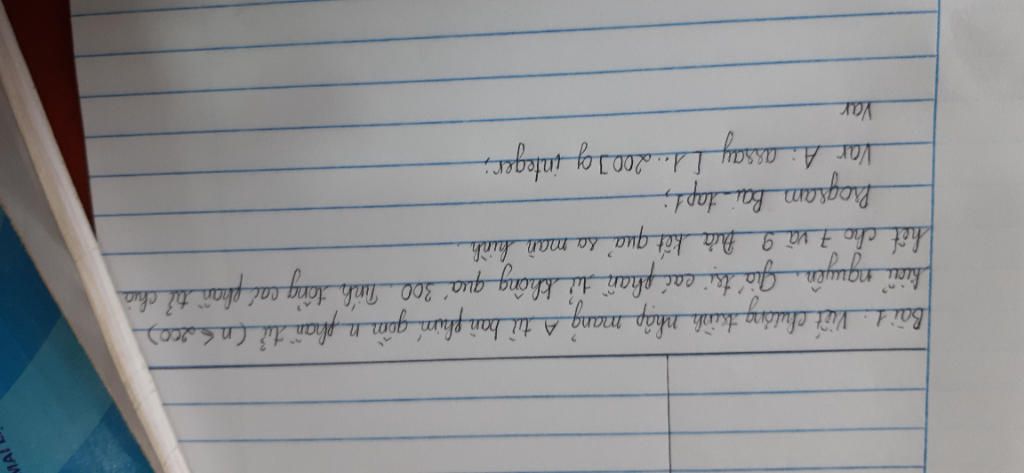 Bài 1: Viết chương trình nhập mảng A từ bàn phím gồm n phần tử (n ≤ 200)
kiểu nguyên. Giá trị các phần tử không quá 300. Tính tổng các phần tử chia
hết cho 7 và 9. Đưa kết quả ra màn hình.
Program Bai_tap1;
Var A: array [1..200] of integer;
Var